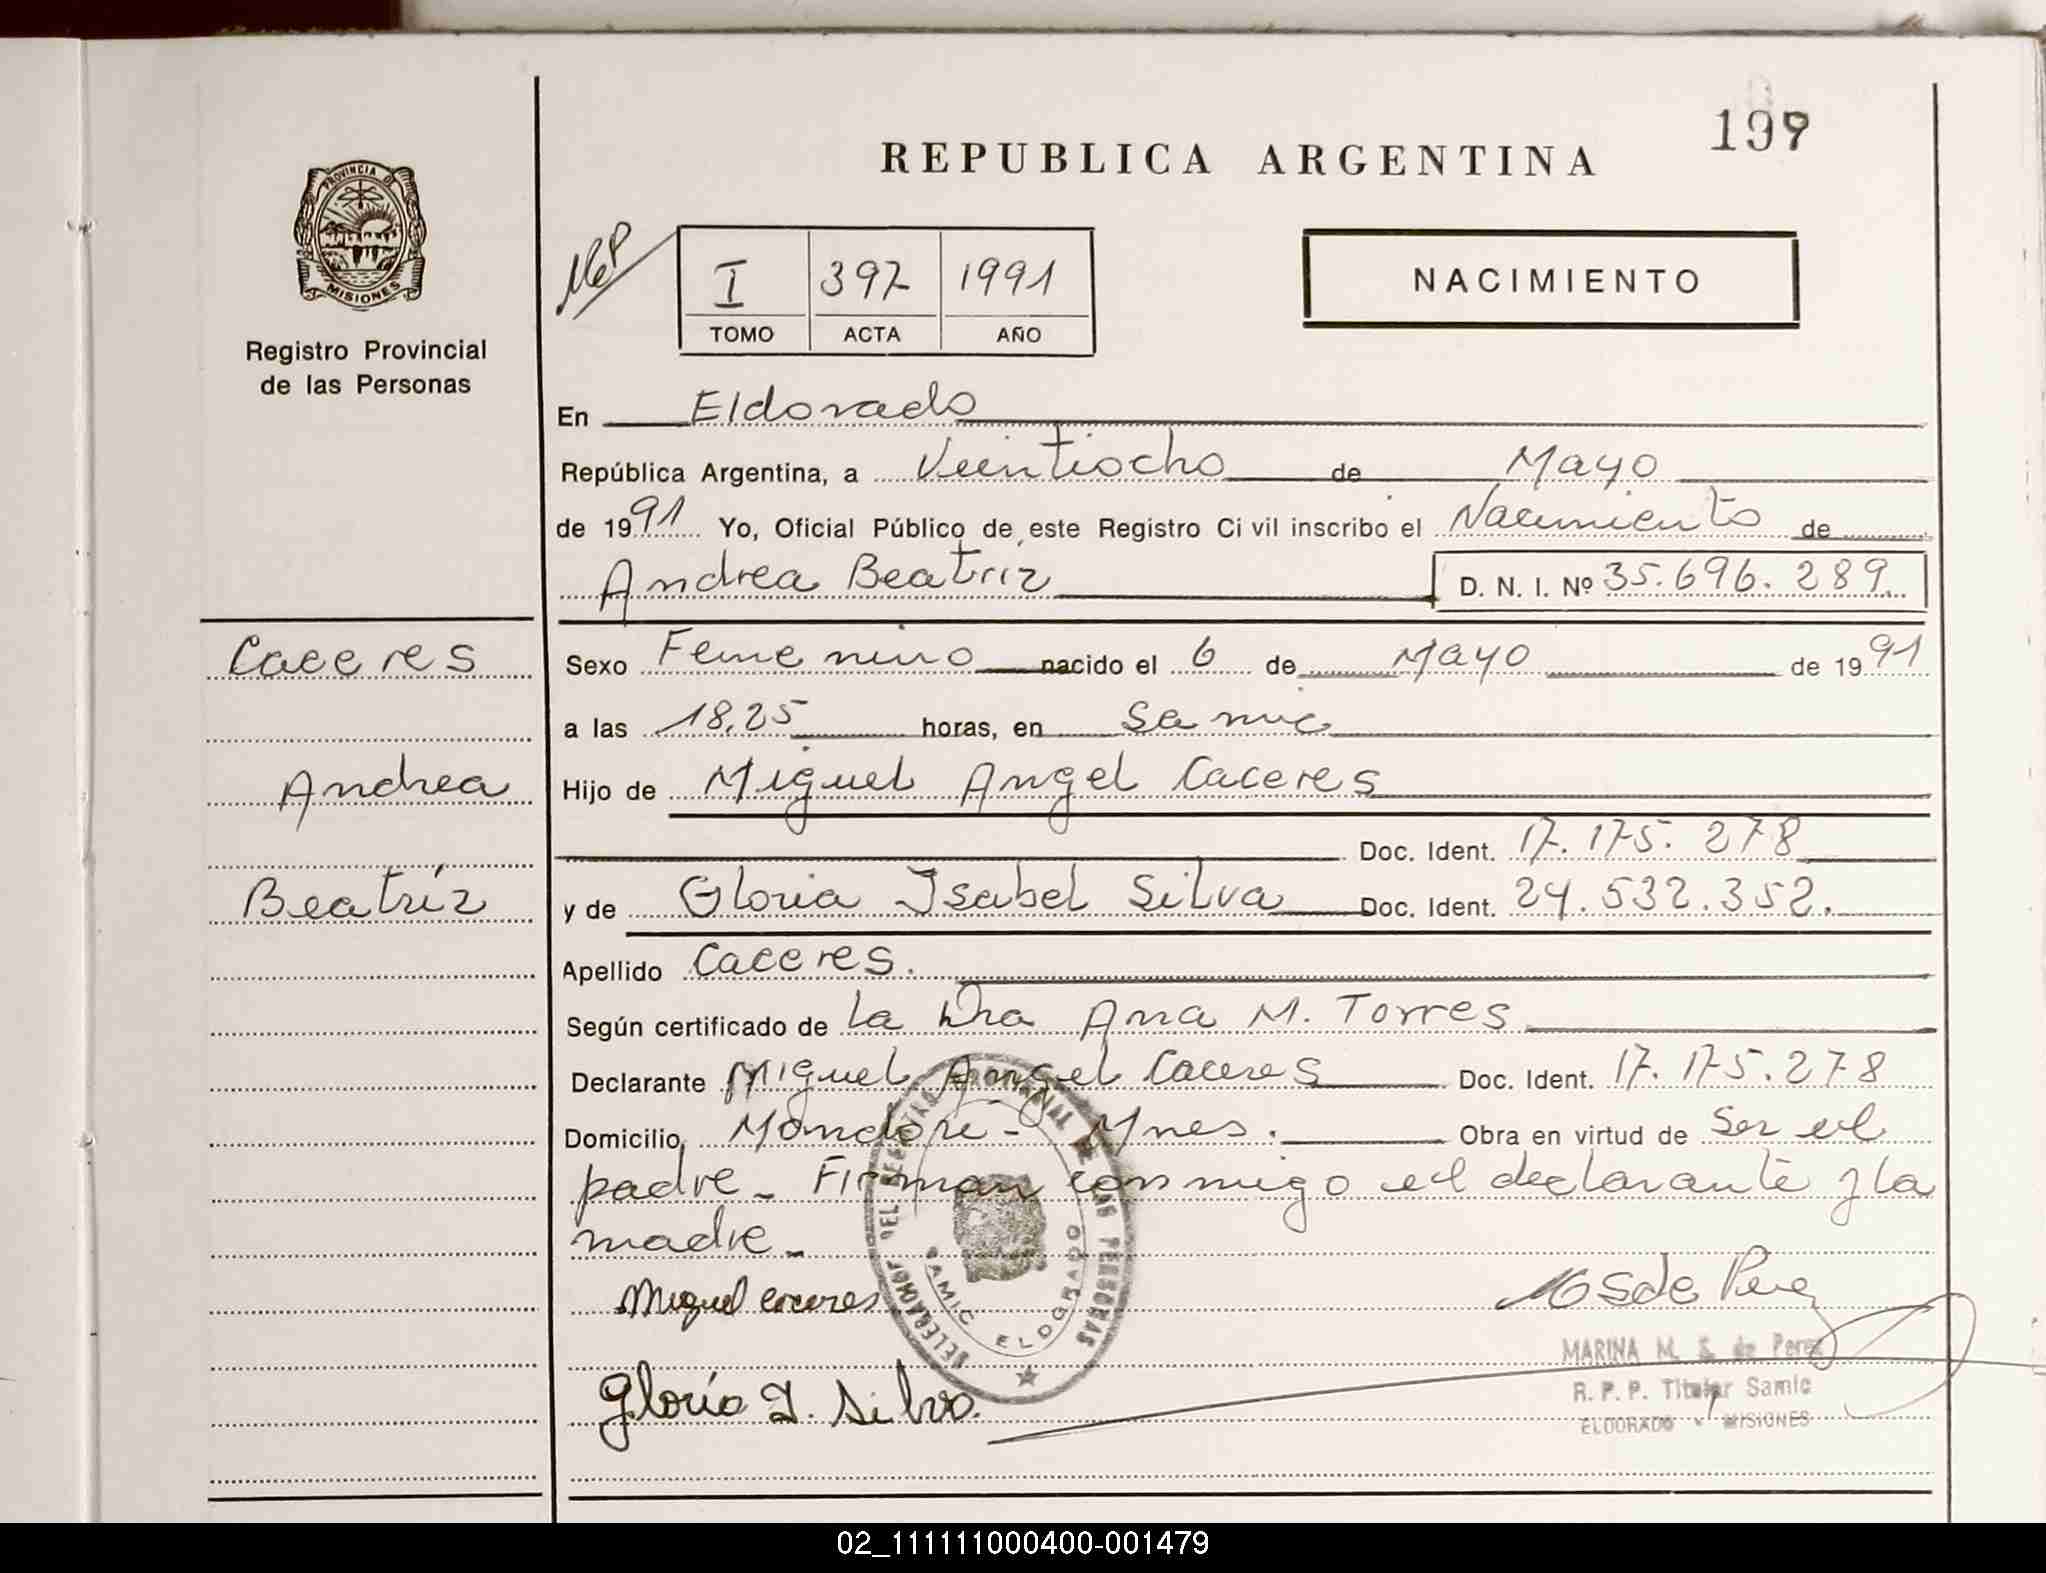 197
REPUBLICA ARGENTINA
PROVINCIA DE
MISIONES
Registro Provincial
de las Personas
I 397 1991
TOMO ACTA AÑO
NACIMIENTO
En Eldorado
República Argentina, a Veintiocho de Mayo
de 1991 Yo, Oficial Público de este Registro Civil inscribo el Nacimiento de
Andrea Beatriz D. N. I. Nº 35.696.289.
Caceres
Sexo Femenino nacido el 6 de Mayo de 1991
a las 18,25 horas, en Samic
Andrea
Hijo de Miguel Angel Caceres
Doc. Ident. 17.175.278
Beatriz
y de Gloria Isabel Silva Doc. Ident. 24.532.352.
Apellido Caceres.
Según certificado de la Dra Ana M. Torres
Declarante Miguel Angel Caceres Doc. Ident. 17.175.278
Domicilio Mondori - Mnes. Obra en virtud de Ser el
padre - Firman conmigo el declarante y la
madre -
Miguel caceres
MSde Perez
DEL REGISTRO PROVINCIAL DE LAS PERSONAS
SAMIC ELDORADO
MARINA M. S. de Perez
R. P. P. Titular Samic
ELDORADO - MISIONES
Gloria I. Silva.
02_111111000400-001479